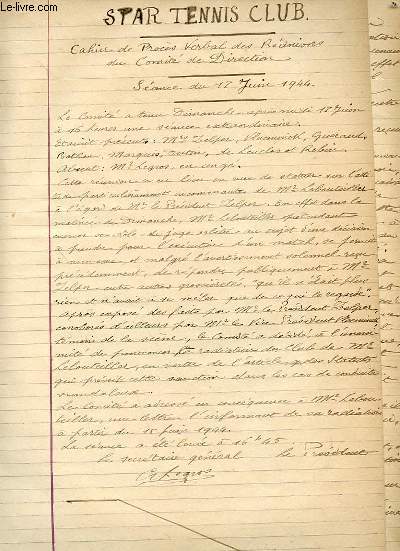 www.Le-Livre.com
STAR TENNIS CLUB.
Cahier de Procès Verbal des Réunions
du Comité de Direction
Séance du 18 Juin 1944.
Le Comité a tenu Dimanche après midi 18 Juin
à 16 heures une séance extraordinaire.
Etaient présents: Mrs Zelfer,
Marquis,
Absent: Mr Legros, en congé.
Cette réunion a eu lieu en vue de statuer sur l'atti
tude particulièrement inconvenante de Mr Lebouteiller
à l'égard de Mr le Président Zelfer. En effet dans la
matinée de Dimanche, Mr Lebouteiller prétendant
exercer son rôle de juge arbitre au sujet d'une décision
à prendre pour l'exécution d'un match, se permit
à nouveau et malgré l'avertissement solennel reçu
précédemment, de répondre publiquement à Mr
Zelfer entre autres grossièretés, "qu'il
rien et n'avait à se mêler que de ce qui le regarde".
Après exposé des faits par Mr le Président Zelfer,
corroborés d'ailleurs par Mr le Vice Président
témoin de la scène, le Comité a décidé à l'unani
mité de prononcer la radiation du Club de Mr
Lebouteiller, en vertu de l'article des Statuts
qui prévoit cette sanction dans les cas de conduite
scandaleuse.
Le Comité a adressé en conséquence à Mr Lebou
teiller, une lettre l'informant de sa radiation
à partir du 18 Juin 1944.
La séance a été levée à 16h45.
Le secrétaire général Le Président
Legros